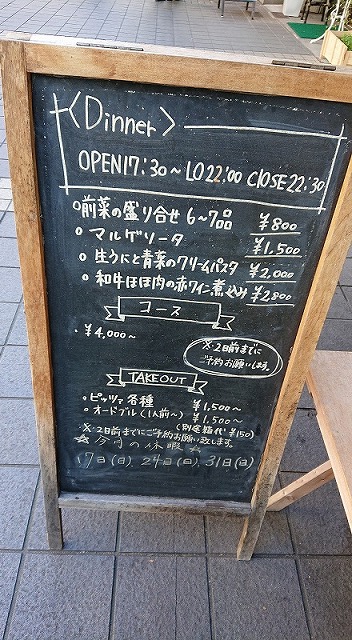 <Dinner>
OPEN17:30~LO22:00 CLOSE22:30
○前菜の盛り合せ 6~7品 ¥800
○マルゲリータ ¥1,500
○生うにと青菜のクリームパスタ ¥2,000
○和牛ほほ肉の赤ワイン煮込み ¥2,800
コース
・¥4,000~
※2日前までに
ご予約お願いします。
TAKEOUT
○ピッツァ各種 ¥1,500~
○オードブル(1人前~) ¥1,500~
(別途箱代¥150)
※2日前までにご予約お願い致します。
☆今月の休暇☆
17日(日)、24日(日)、31日(日)